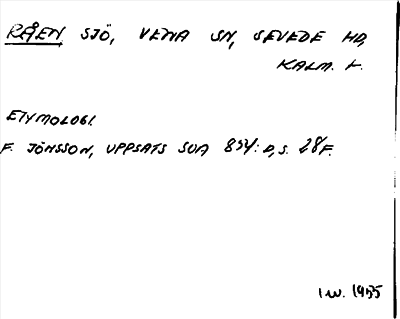 RÅEN SJÖ, VENA SN, SEVEDE HD,
KALM. L.
ETYMOLOGI.
F. JÖNSSON, UPPSATS SOA 854: D, S. 28 F.
I W. 1955